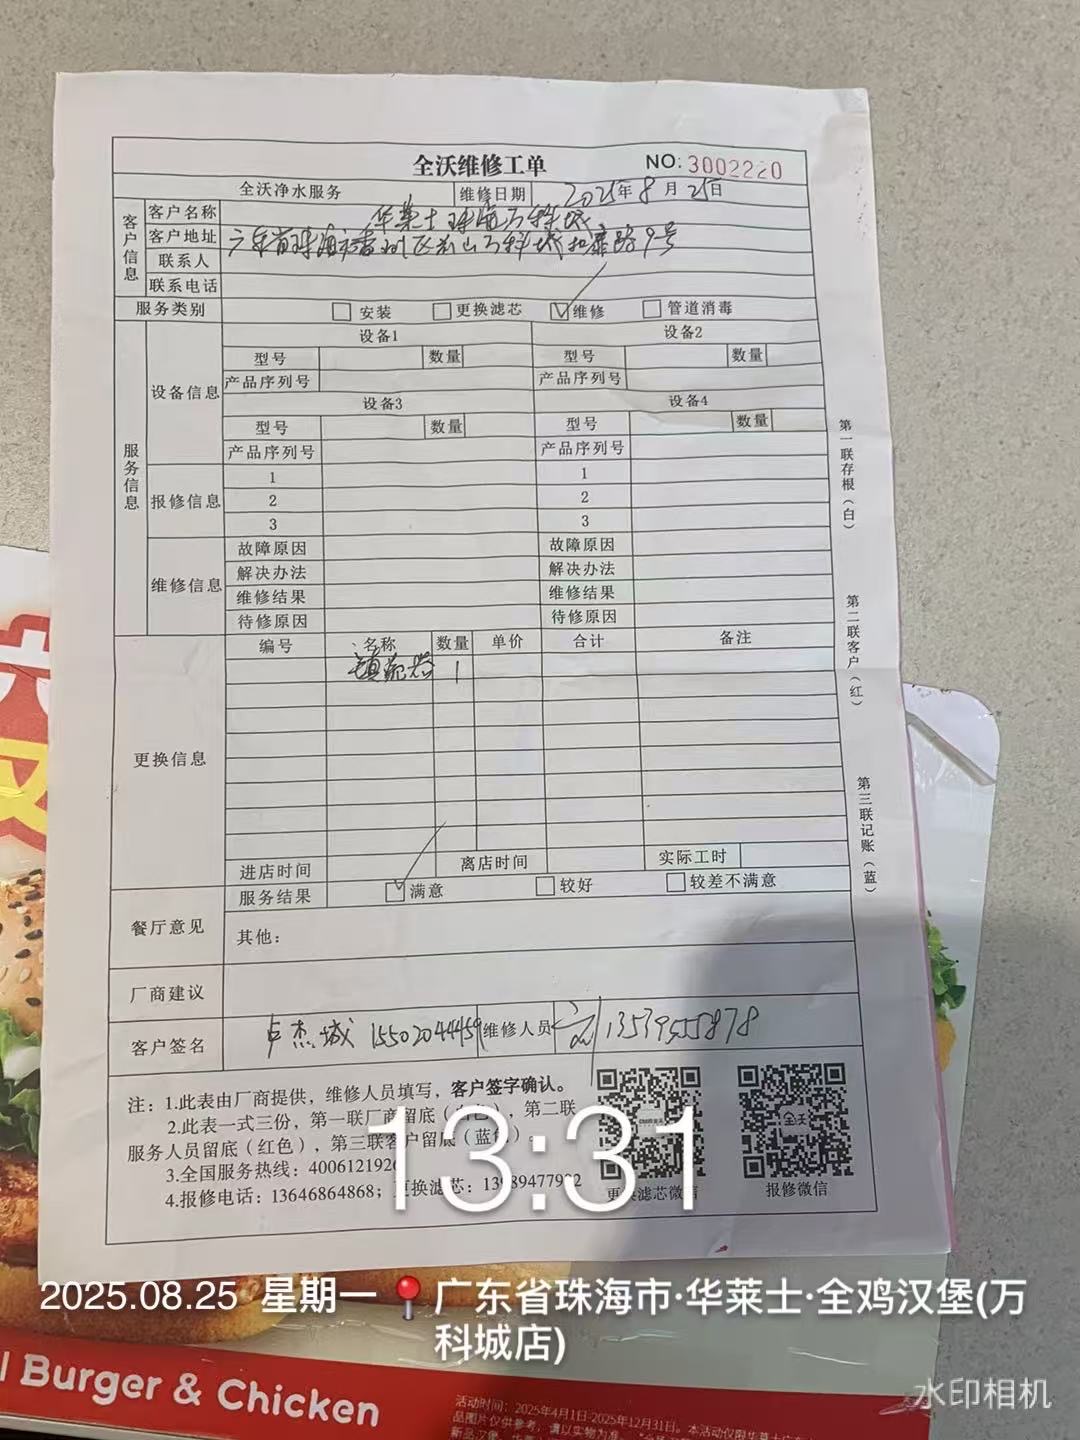 全沃维修工单 NO:3002220
全沃净水服务 维修日期 2025年8月25日
客户信息
客户名称 华莱士珠海万科城
客户地址 广东省珠海市香洲区前山万科城 路9号
联系人
联系电话
服务类别 安装 更换滤芯 维修 管道消毒
服务信息
设备信息
设备1 设备2
型号 数量 型号 数量
产品序列号 产品序列号
设备3 设备4
型号 数量 型号 数量
产品序列号 产品序列号
报修信息
1 1
2 2
3 3
维修信息
故障原因 故障原因
解决办法 解决办法
维修结果 维修结果
待修原因 待修原因
更换信息
编号 名称 数量 单价 合计 备注
镇流器 1
进店时间 离店时间 实际工时
餐厅意见
服务结果 满意 较好 较差不满意
其他：
厂商建议
客户签名 卢杰城 15502044459 维修人员 13539555878
注：1.此表由厂商提供，维修人员填写，客户签字确认。
2.此表一式三份，第一联厂商留底（白色），第二联
服务人员留底（红色），第三联客户留底（蓝色）。
3.全国服务热线：4006121926
4.报修电话：13646864868；更换滤芯：13989477992
更换滤芯微信 报修微信
第一联存根（白）
第二联客户（红）
第三联记账（蓝）
13:31
2025.08.25 星期一 广东省珠海市·华莱士·全鸡汉堡(万
科城店)
l Burger & Chicken
活动时间：2025年4月1日-2025年12月31日。本活动仅限华莱士
品图片仅供参考，请以实物为准。
水印相机